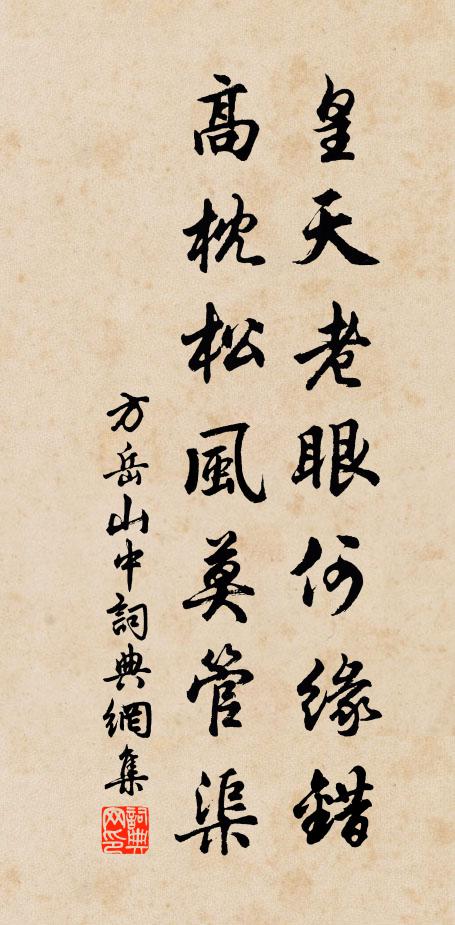 皇天老眼何緣錯
高枕松風莫管渠
方岳山中詞典網集
詞典網印